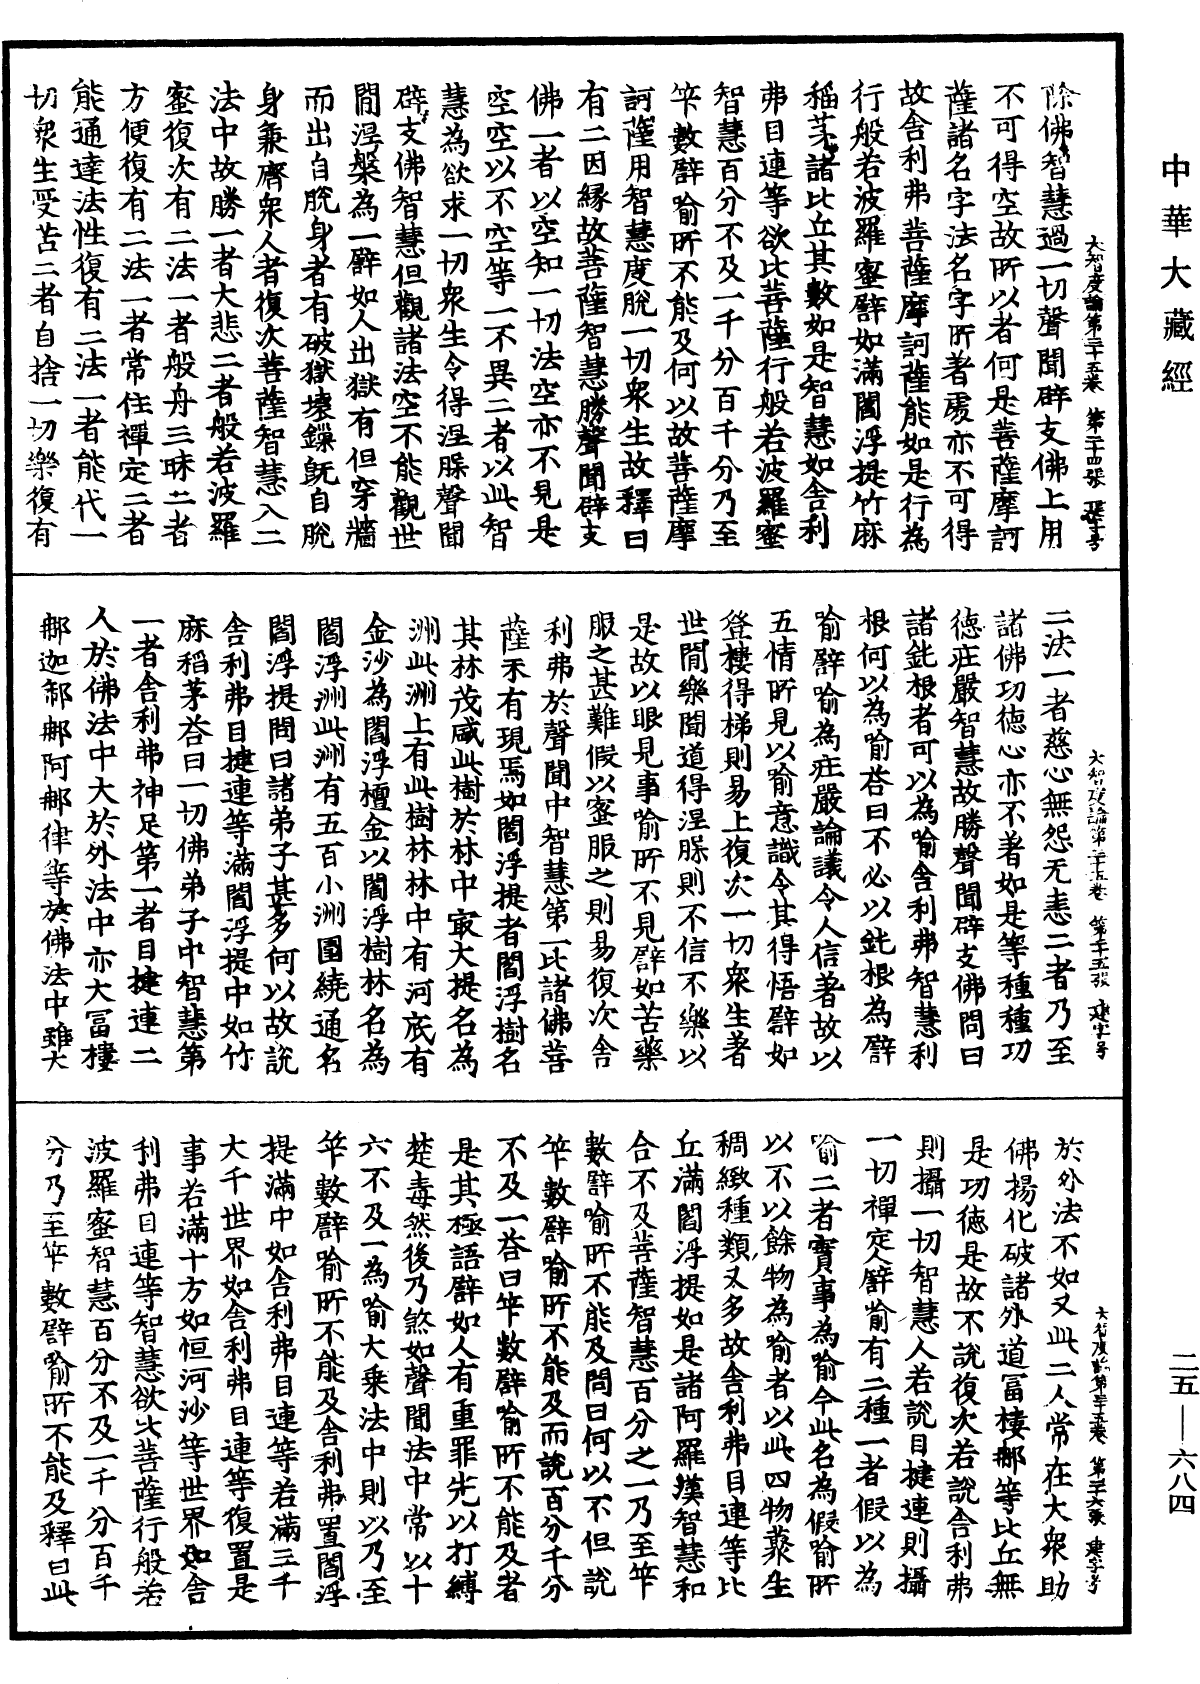 中華大藏經
二五—六八四
大智度論第三十五卷 第二十四張 建字号
除佛智慧過一切聲聞辟支佛上用
不可得空故所以者何是菩薩摩訶
薩諸名字法名字所著處亦不可得
故舍利弗菩薩摩訶薩能如是行為
行般若波羅蜜譬如滿閻浮提竹麻
稻茅諸比丘其數如是智慧如舍利
弗目連等欲比菩薩行般若波羅蜜
智慧百分不及一千分百千分乃至
筭數譬喻所不能及何以故菩薩摩
訶薩用智慧度脫一切衆生故釋曰
有二因緣故菩薩智慧勝聲聞辟支
佛一者以空知一切法空亦不見是
空空以不空等一不異二者以此智
慧為欲求一切衆生令得涅槃聲聞
辟支佛智慧但觀諸法空不能觀世
間涅槃為一譬如人出獄有但穿牆
而出自脫身者有破獄壞鏁旣自脫
身兼濟衆人者復次菩薩智慧入二
法中故勝一者大悲二者般若波羅
蜜復次有二法一者般舟三昧二者
方便復有二法一者常住禪定二者
能通達法性復有二法一者能代一
切衆生受苦二者自捨一切樂復有
大智度論第三十五卷 第二十五張 建字号
二法一者慈心無怨无恚二者乃至
諸佛功德心亦不著如是等種種功
德莊嚴智慧故勝聲聞辟支佛問曰
諸鈍根者可以為喻舍利弗智慧利
根何以為喻荅曰不必以鈍根為譬
喻譬喻為莊嚴論議令人信著故以
五情所見以喻意識令其得悟譬如
登樓得梯則易上復次一切衆生著
世間樂聞道得涅槃則不信不樂以
是故以眼見事喻所不見譬如苦藥
服之甚難假以蜜服之則易復次舍
利弗於聲聞中智慧第一比諸佛菩
薩未有現焉如閻浮提者閻浮樹名
其林茂盛此樹於林中㝡大提名為
洲此洲上有此樹林林中有河底有
金沙為閻浮檀金以閻浮樹林名為
閻浮洲此洲有五百小洲圍繞通名
閻浮提問曰諸弟子甚多何以故說
舍利弗目揵連等滿閻浮提中如竹
麻稻茅荅曰一切佛弟子中智慧第
一者舍利弗神足第一者目揵連二
人於佛法中大於外法中亦大冨樓
那迦郗那阿那律等於佛法中雖大
大智度論第三十五卷 第二十六張 建字号
於外法不如又此二人常在大衆助
佛揚化破諸外道冨樓那等比丘無
是功德是故不說復次若說舍利弗
則攝一切智慧人若說目揵連則攝
一切禪定人譬喻有二種一者假以為
喻二者實事為喻今此名為假喻所
以不以餘物為喻者以此四物藂生
稠緻種類又多故舍利弗目連等比
丘滿閻浮提如是諸阿羅漢智慧和
合不及菩薩智慧百分之一乃至筭
數譬喻所不能及問曰何以不但說
筭數譬喻所不能及而說百分千分
不及一荅曰筭數譬喻所不能及者
是其極語譬如人有重罪先以打縛
楚毒然後乃煞如聲聞法中常以十
六不及一為喻大乘法中則以乃至
筭數譬喻所不能及舍利弗置閻浮
提滿中如舍利弗目連等若滿三千
大千世界如舍利弗目連等復置是
事若滿十方如恒河沙等世界如舍
利弗目連等智慧欲比菩薩行般若
波羅蜜智慧百分不及一千分百千
分乃至筭數譬喻所不能及釋曰此